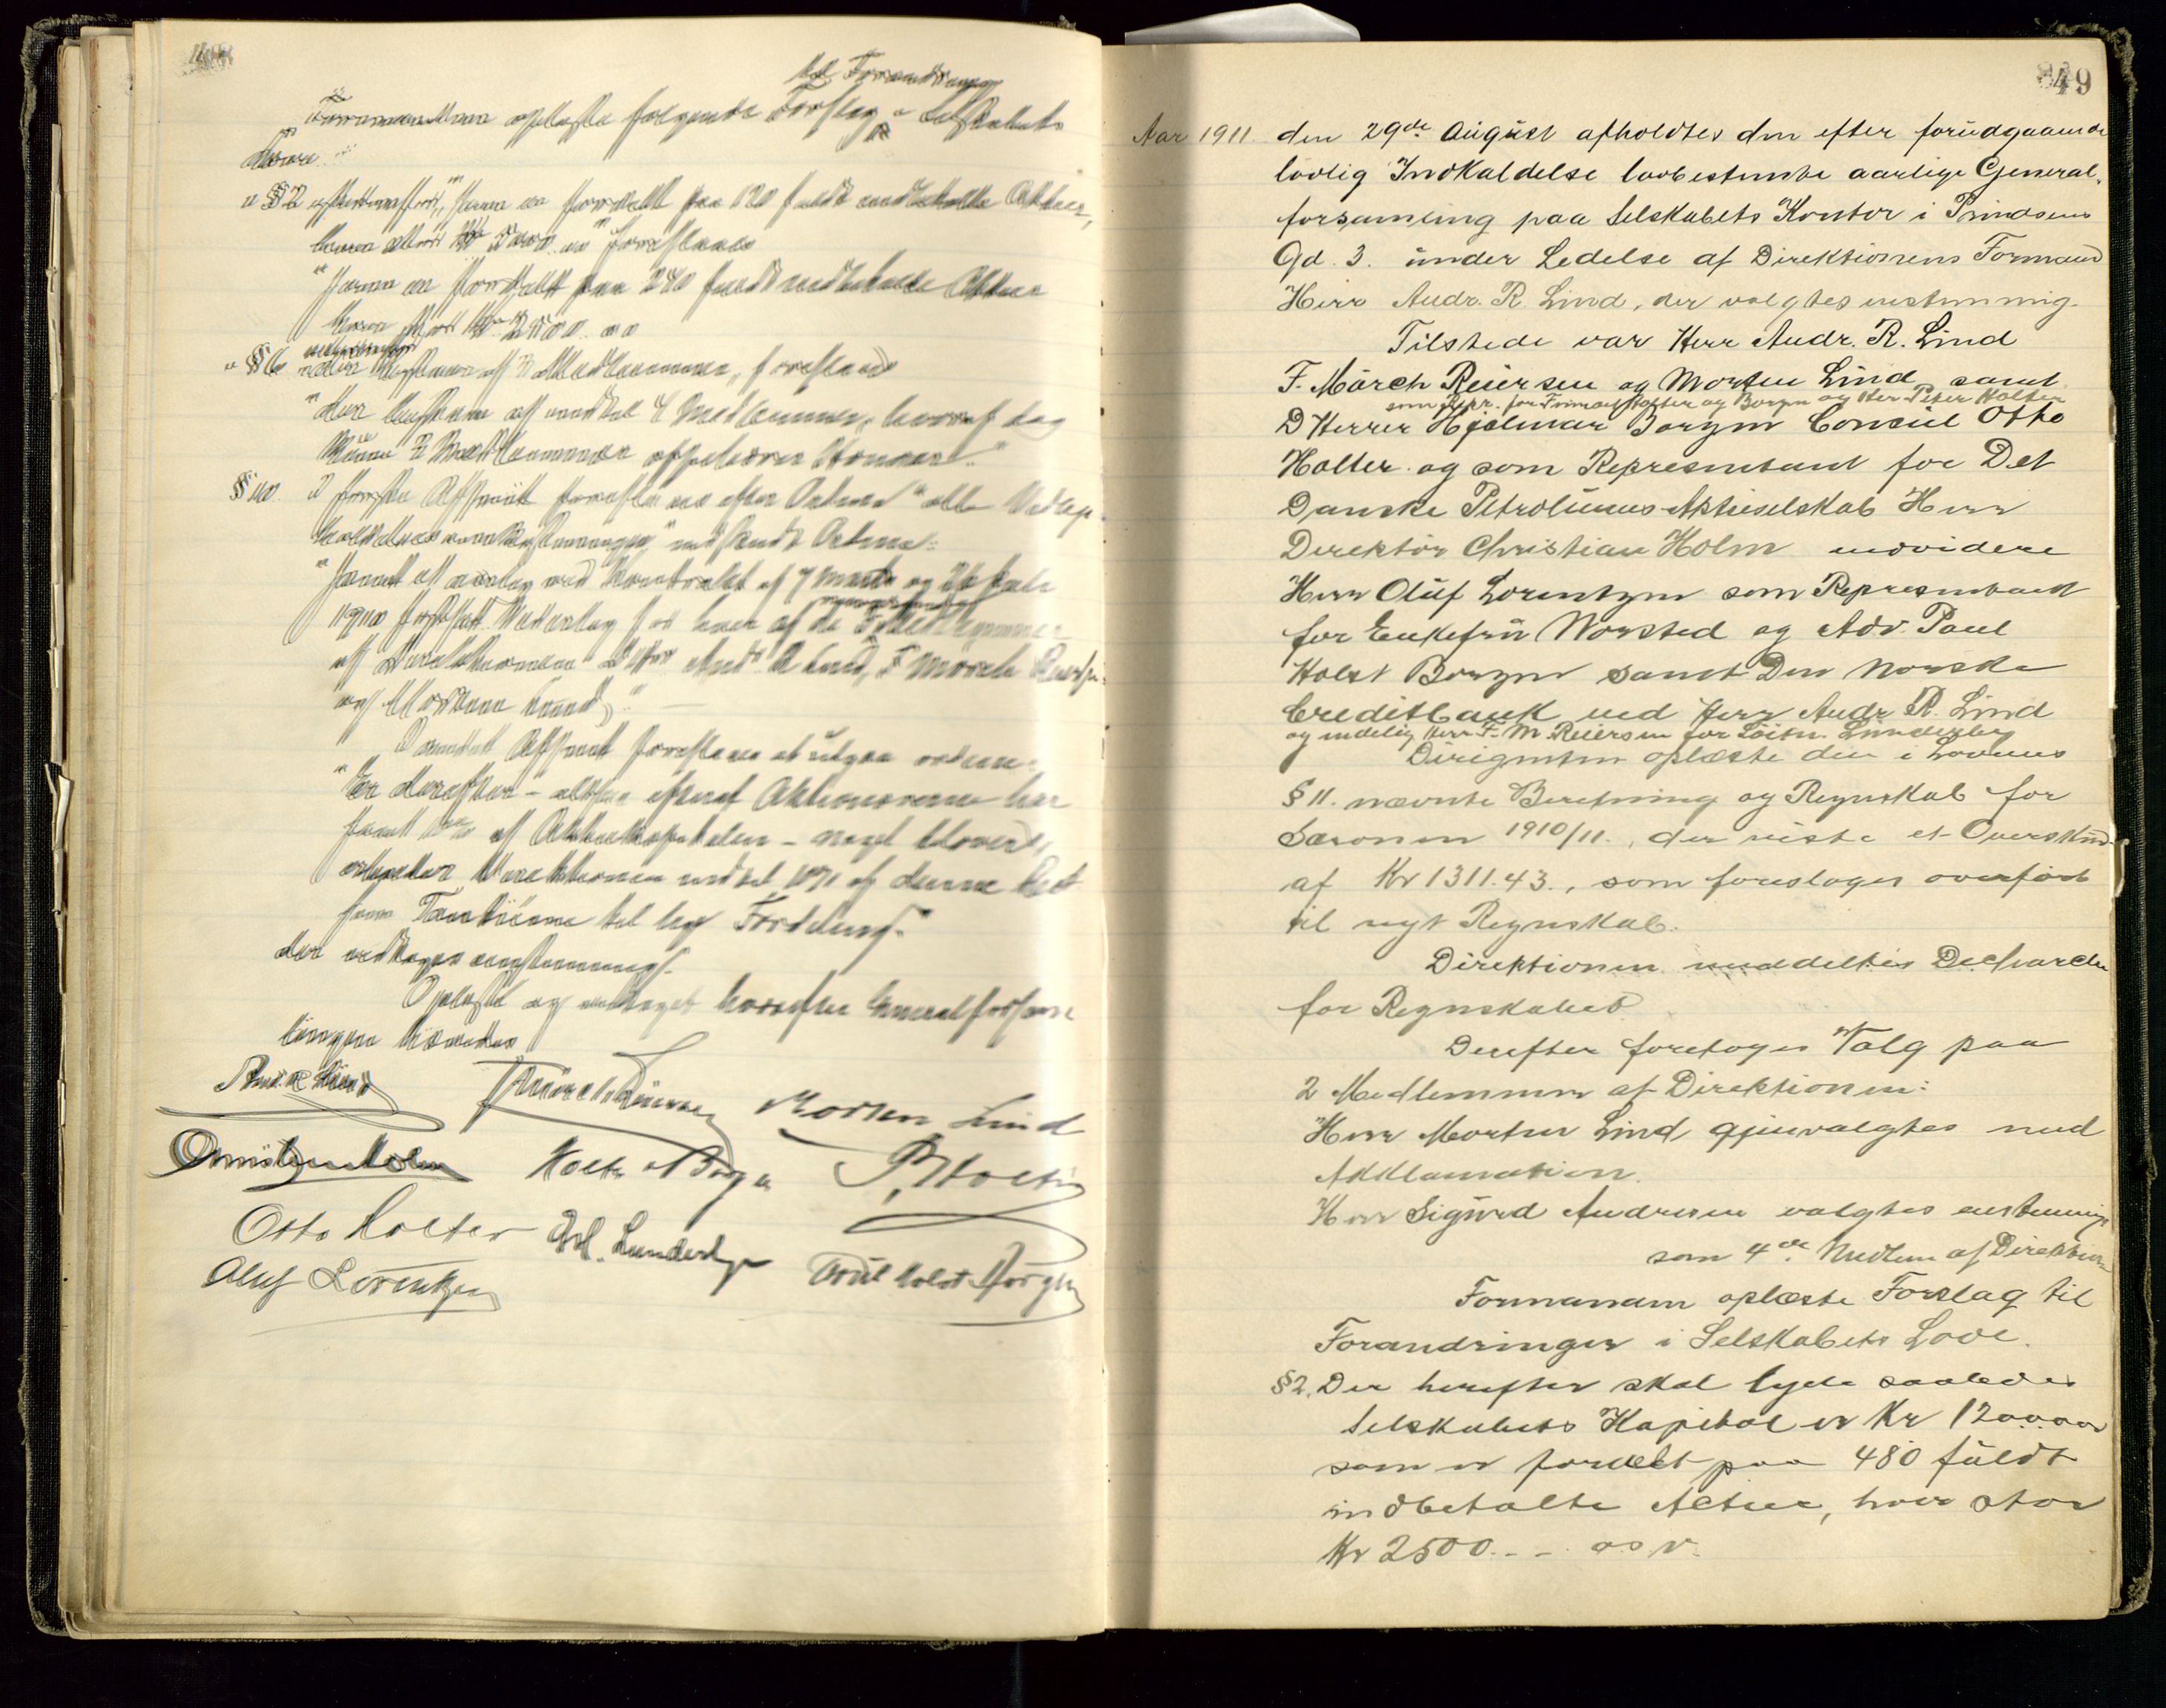 til Forandringer
Formanden oplæste følgende Forslag i Selskabets
Love
"§2 som er fordelt paa 120 fuldt indbetalte Aktier,
foreslaaes
"som er fordelt paa 240 fuldt indbetalte Aktier
hver stor Kr. 2500
"§6 bestaar af 3 Medlemmer, foreslaaes
"der bestaar af indtil 4 Medlemmer, hvoraf dog
Medlemmer
§10. I første Afsnit foreslaaes efter Ordene "alle Vedtag-
indskudt Ordene:
"samt at ved Kontrakt af 7 Marts og 26 Juli
Vederlag for hver af de
af Direktionen D'Herr Andr. R. Lind, F. Mørch Reiersen
og Morten Lind"
I Afsnit foreslaaes at udgaa ordene
"Er derefter - altsaa efterat Aktionærerne har
faaet af Aktiekapitalen - noget tilovers,
erholder Direktionen indtil 10% af denne Rest
som Tantieme til lige Fordeling."
der vedtoges enstemmigt.
Oplæst og vedtaget hvorefter Generalforsam
lingen hævedes
Andr. R. Lind F Mørch Reiersen Morten Lind
Christian Holm Holter & Borgen P. Holter
Otto Holter Lunderbye
Oluf Lorentzen Poul Holst Borgen
49
Aar 1911. den 29de August afholdtes den efter forudgaaende
lovlig Indkaldelse lovbestemte aarlige General-
forsamling paa Selskabets Kontor i Prindsens
Gd. 3. under Ledelse af Direktionens Formand
Herr Andr. R. Lind, der valgtes enstemmig.
Tilstede var Herr Andr. R. Lind
F. Mørch Reiersen og Morten Lind, samt
som Repr. for Firmaet Holter og Borgen og Herr Peter Holter
D Herrer Hjalmar Borgen Consul Otto
Holter og som Representant for Det
Danske Petroleums-Aktieselskab Herr
Direktør Christian Holm endvidere
Herr Oluf Lorentzen som Representant
for Enkefru Worsted og Adv. Paul
Holst Borgen samt Den Norske
Creditbank ved Herr Andr R. Lind
og endelig Herr F. M. Reiersen for Løitn. Lunderbye
Dirigenten oplæste den i Lovenes
§ 11. nævnte Beretning og Regnskab for
Sæsonen 1910/11., der viste et Overskud
af Kr 1311.43., som foresloges overført
til nyt Regnskab.
Direktionen meddeltes Decharche
for Regnskabet
Derefter foretoges Valg paa
2 Medlemmer af Direktionen:
Herr Morten Lind gjenvalgtes med
Akklamation.
Herr Sigurd Andresen valgtes enstemmigt
som 4de Medlem af Direktionen
Formanden oplæste Forslag til
Forandringer i Selskabets Love.
§2. Der herefter skal lyde saaledes
Selskabets Kapital er Kr 1200000
som er fordelt paa 480 fuldt
indbetalte Aktier, hver stor
Kr 2500.-- osv.